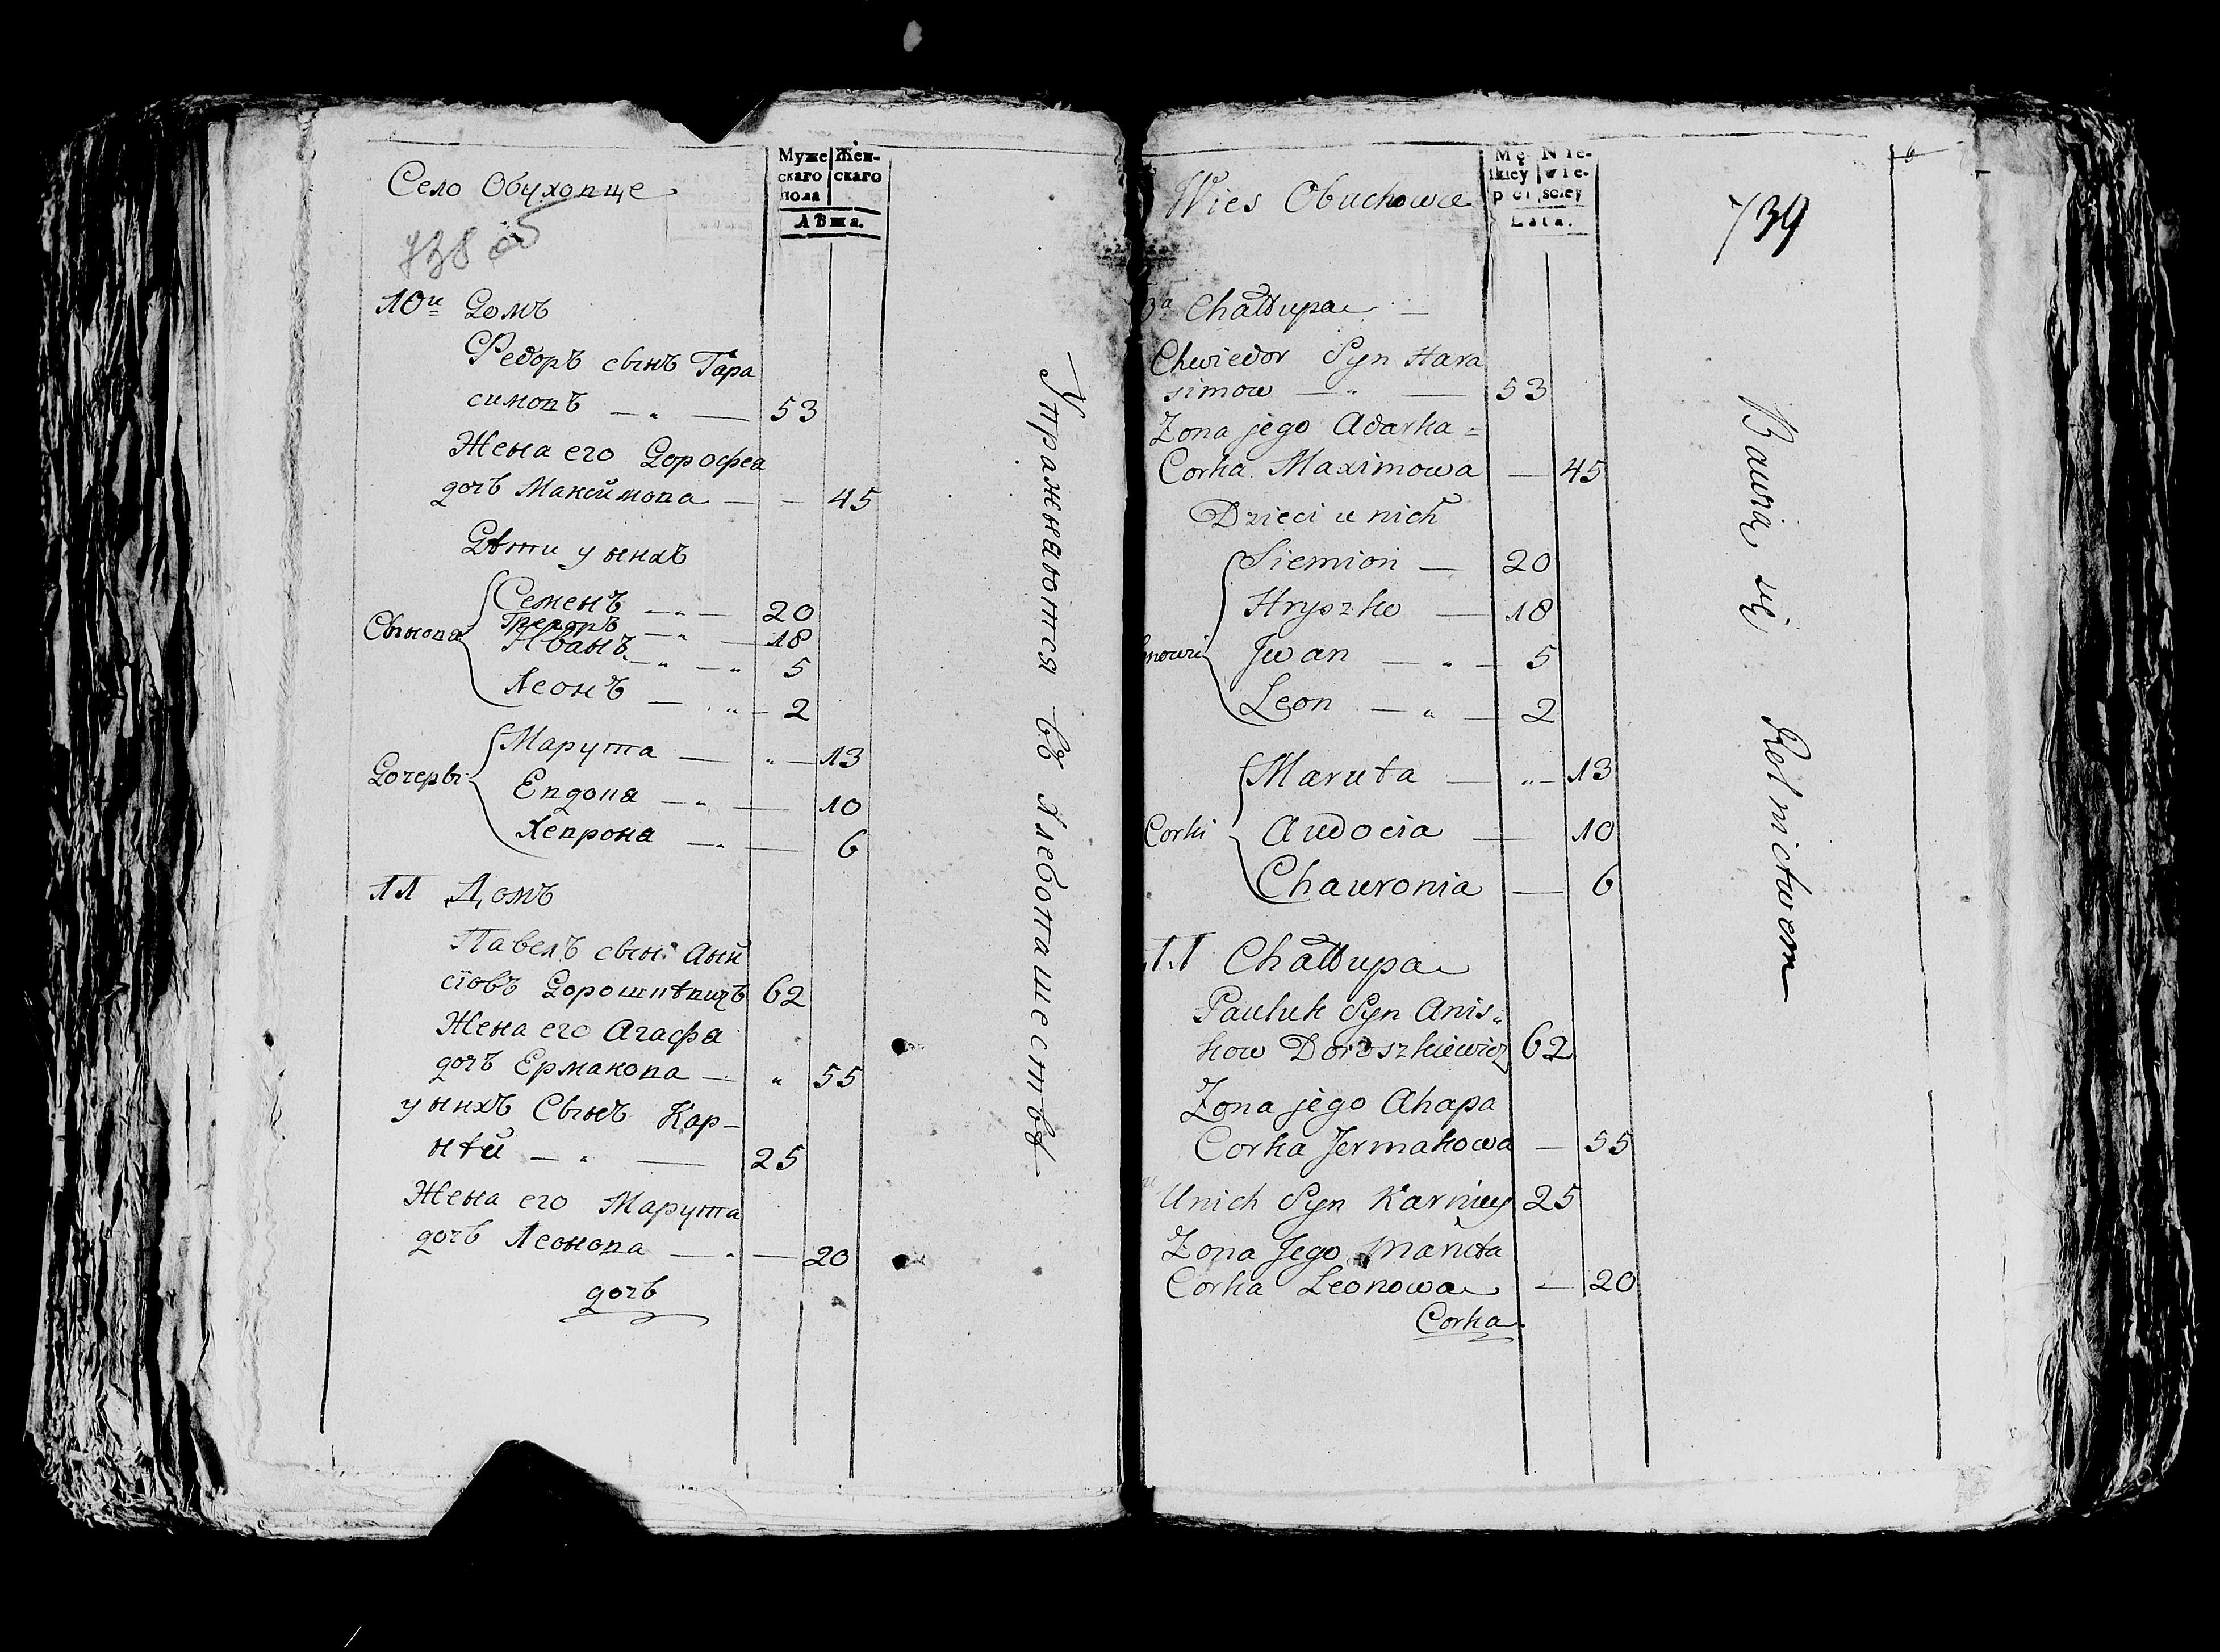 Село Обуховце
738 об
Муже Жен-
скаго скаго
пола
Лѣта.
10й Домъ
Федоръ сынъ Гара
симовъ — „ — 53
Жена его Дорофеа
дочь Максимова — — 45
Дѣти у ныхъ
Сынова
Семенъ — „ — 20
Грегоръ — „ — 18
Иванъ — „ — „ 5
Леонъ — „ — 2
Дочеры
Марута — „ — 13
Евдоиа — „ — 10
Хеврона — „ — 6
11 Домъ
Павелъ сын: Аны
сіовъ Дорошкѣвичъ 62
Жена его Агафа
дочь Ермакова — „ 55
у ныхъ Сынъ Кар-
нѣй — „ — 25
Жена его Марута
дочь Леонова — „ — 20
дочь
Упражнаются въ хлебопашествѣ
Wies Obuchowce
Mę- Nie-
skiey wie-
płci sciey
Lata.
739
6
a Chałłupa —
Chwiedor Syn Hara
simow — „ — 53
Zona jego Adarka =
Corka Maximowa — 45
Dzieci u nich
nowie
Siemion — 20
Hryszko — 18
Jwan — „ — 5
Leon — „ — 2
Corki
Maruta — „ — 13
Audocia — 10
Chauronia — 6
11 Chałłupa
Pauluk Syn Anis„
kow Doroszkiewicz 62
Zona jego Ahapa
Corka Jermakowa — 55
Unich Syn Karniey 25
Zona Jego Maruta
Corka Leonowa — 20
Corka
Bawią się Rolnictwem